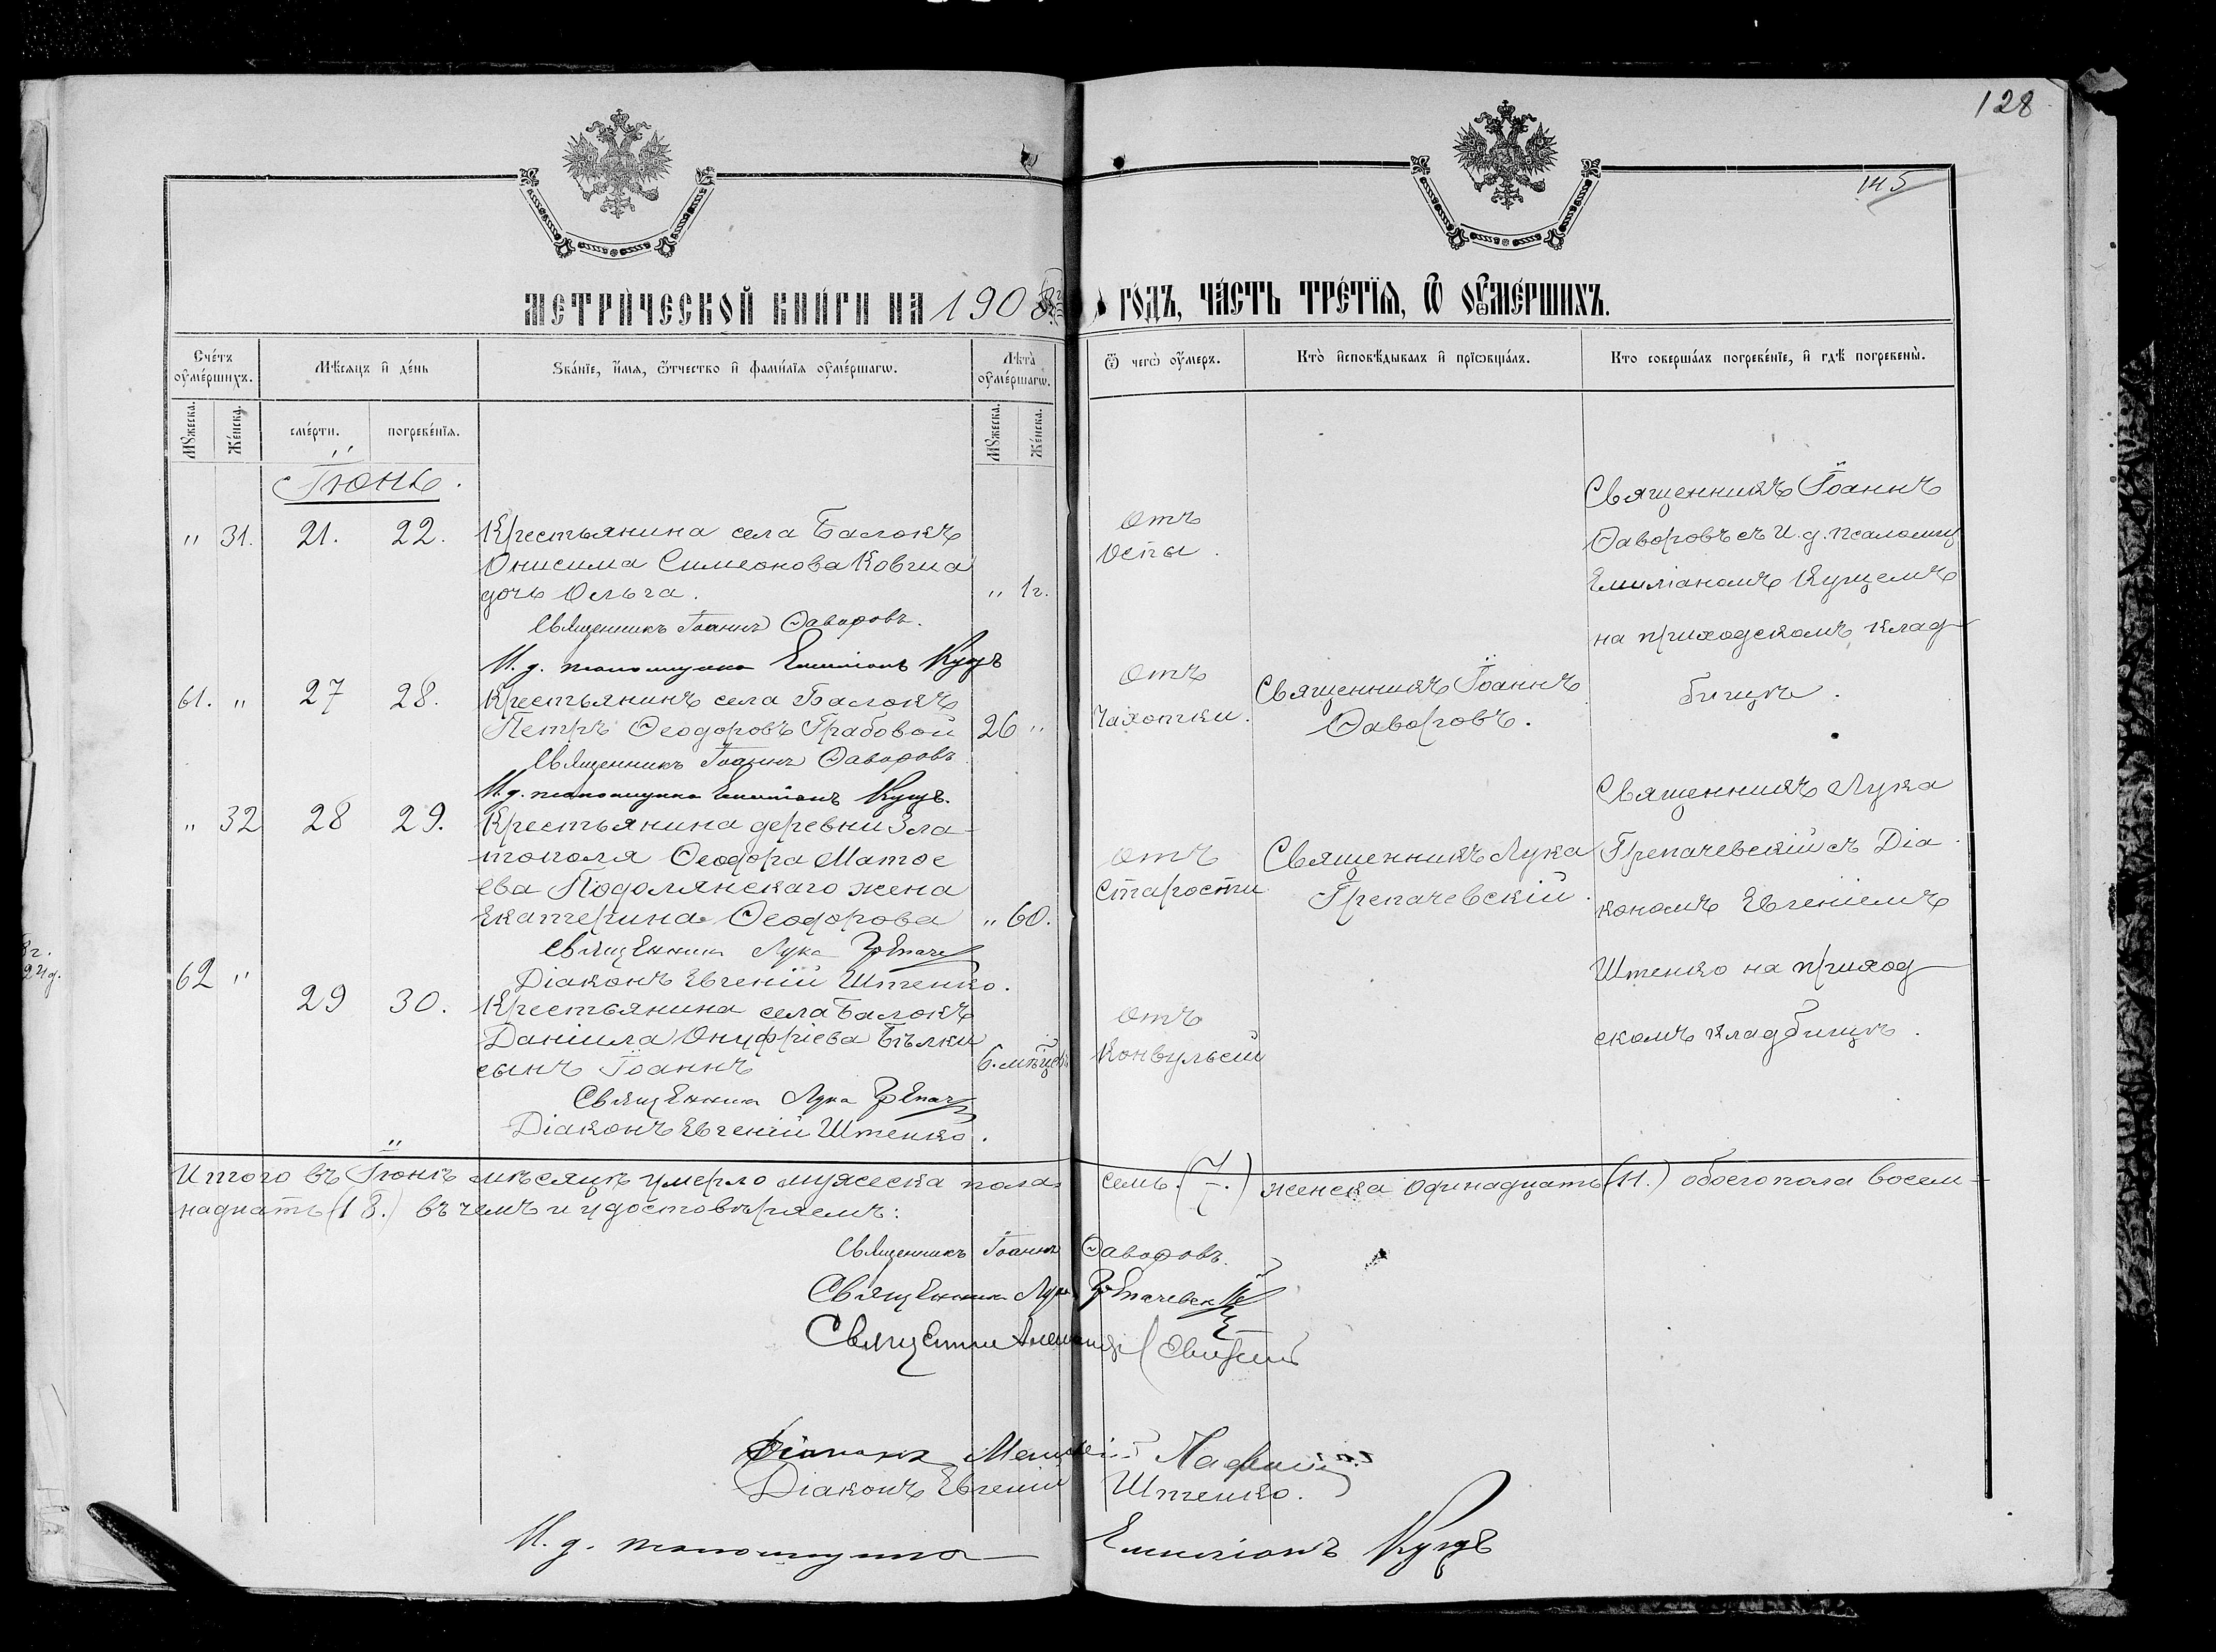 128
145
МЕТРИ́ЧЕСКОЙ КНИ́ГИ НА 1908 ГО́ДЪ, ЧА́СТЬ ТРЕ́ТЇѦ, Ѿ ОУМЕ́РШИХЪ.
Сче́тъ оуме́ршихъ.
Мѣсяцъ и де́нь
Зва́нїе, и́мя, ѻ́тчество и фами́лїя оуме́ршагѡ.
Лѣта̀ оуме́ршагѡ.
Ѿ чегѡ̀ оу́меръ.
Кто̀ исповѣ́дывалъ и прїѡбща́лъ.
Кто совершалъ погребе́нїе, и гдѣ̀ погребены̀.
Мꙋжеска.
Же́нска.
сме́рти.
погребе́нїя.
Мꙋжеска.
Же́нска.
Іюнь.
" 31. 21. 22. Крестьянина села Балокъ
Онисима Симеонова Ковгиа
дочь Ольга. " 1г.
Священникъ Іоаннъ Ѳаворовъ.
И. д. псаломщика Емиліанъ Кущъ
Отъ
Оспы.
Священникъ Іоаннъ
Ѳаворовъ съ И. д. псаломщ
Емиліаномъ Кущемъ
на приходскомъ клад
бищѣ.
61. " 27 28. Крестьянинъ села Балокъ
Петръ Ѳеодоровъ Грабовой 26 "
Священникъ Іоаннъ Ѳаворовъ
И. д. псаломщика Емиліанъ Кущъ.
Отъ
Чахотки.
Священникъ Іоаннъ
Ѳаворовъ.
" 32 28 29. Крестьянина деревни Зла-
тополя Ѳеодора Матѳе
ева Подолянскаго жена
Екатерина Ѳеодорова " 60.
Священникъ Лука
Діаконъ Евгеній Штенко.
Отъ
Старости
Священникъ Лука
Грепачевскій.
Священникъ Лука
Грепачевскій съ Діа
кономъ Евгеніемъ
Штенко на приход
скомъ кладбищѣ.
62 " 29 30. Крестьянина села Балокъ
Даніила Онуфріева Бѣлки
сынъ Іоаннъ 6. мѣсц
Священникъ Лука
Діаконъ Евгеній Штенко.
Отъ
Конвульсій
Итого въ Іюнѣ мѣсяцѣ умерло мужеска пола семь (7.) женска одинадцать (11.) обоего пола восем-
надцать (18.) въ чемъ и удостовѣряемъ:
Священникъ Іоаннъ Ѳаворовъ.
Священникъ Лука Грепачевскій
Священникъ Александръ
Діаконъ
Діаконъ Евгеній Штенко.
И. д. псаломщика Емиліанъ Кущъ